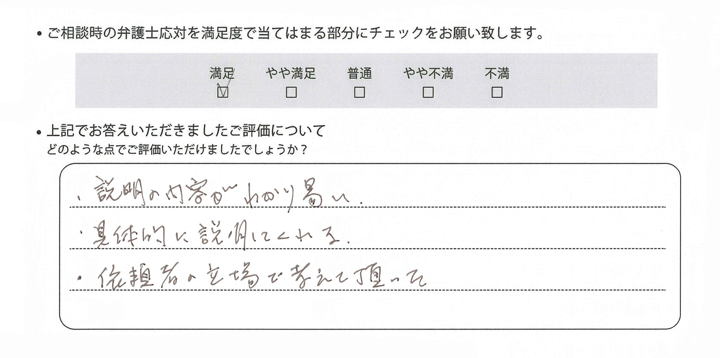 • ご相談時の弁護士応対を満足度で当てはまる部分にチェックをお願い致します。
満足 やや満足 普通 やや不満 不満
☑ □ □ □ □
• 上記でお答えいただきましたご評価について
どのような点でご評価いただけましたでしょうか？
・説明の内容がわかり易い.
・具体的に説明してくれる.
・依頼者の立場で考えて頂って